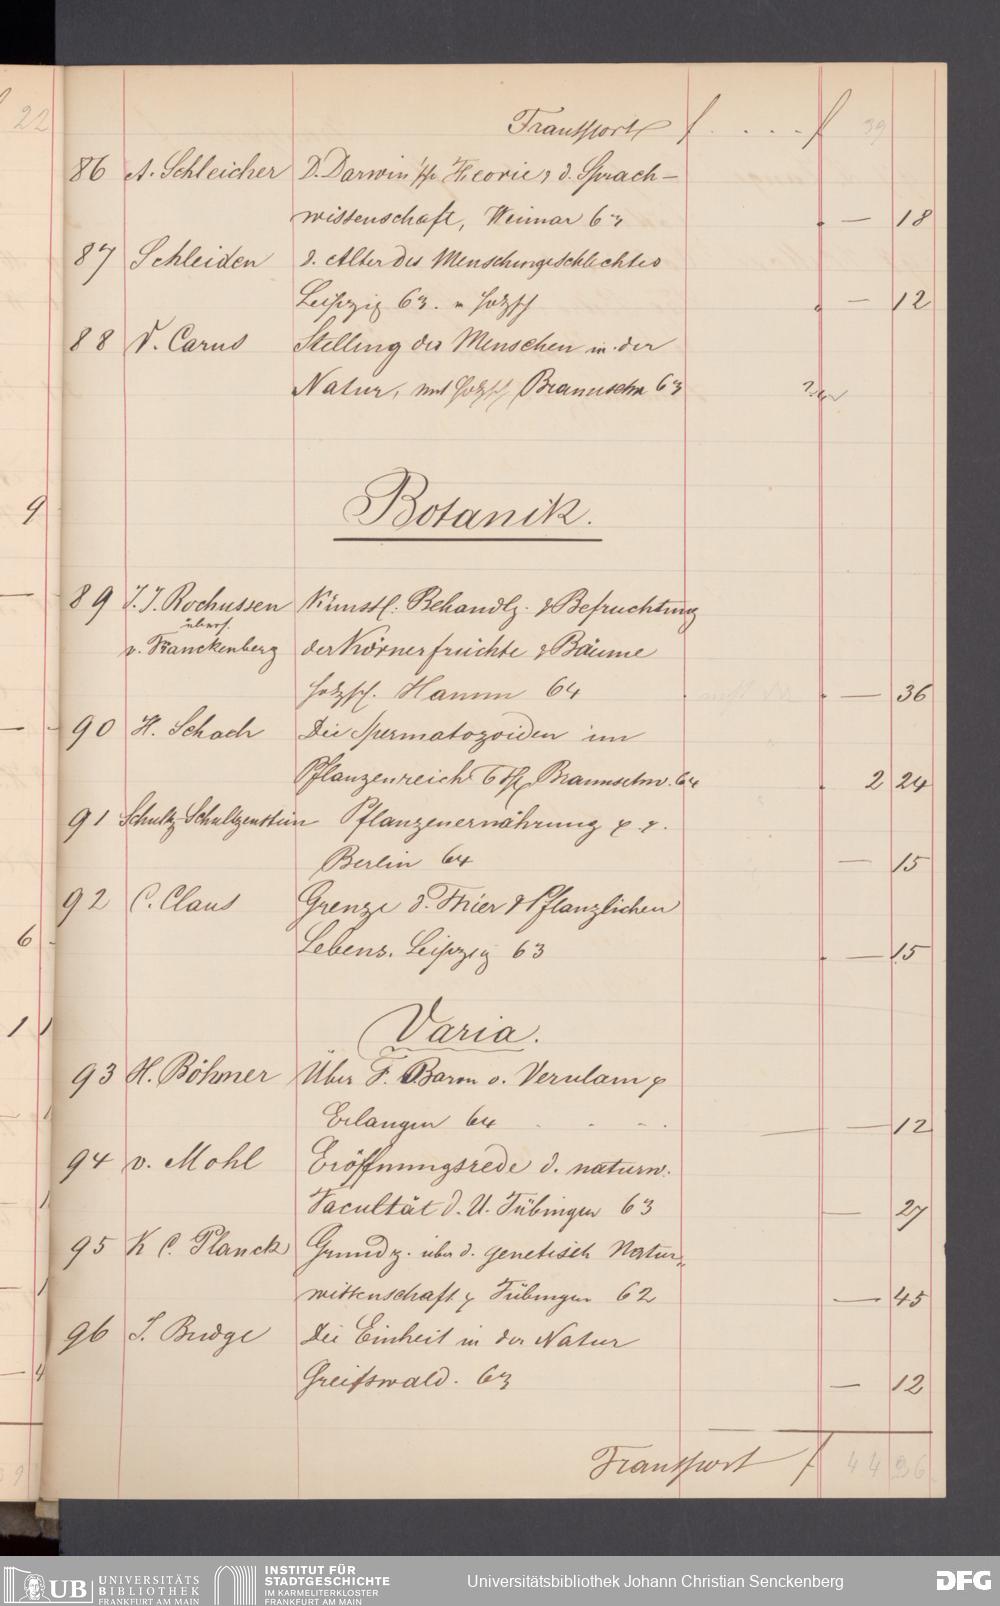 22
Transport f . . . . f 39
86 A. Schleicher D. Darwin'sche Theorie & d. Sprach-
wissenschaft, Weimar 63 — 18
87 Schleiden D. Alter des Menschengeschlechtes
Leipzig 63. Holzsch — 12
88 V. Carus Stellung des Menschen in der
Natur, mit Holzsch Braunschw 63
9
Botanik.
89 J. J. Rochussen Künstl. Behandlg. & Befruchtung
übers.
v. Franckenberg der Körnerfrüchte & Bäume
Holzsch. Hamm 64 — 36
90 H. Schach Die Spermatozoiden im
Pflanzenreich 6 Braunschw. 64 2 24
91 Schultz-Schultzenstein Pflanzenernährung
Berlin 64 — 15
92 C. Claus Grenze d. Thier & Pflanzlichen
6
Lebens. Leipzig 63 — 15
11
Varia.
93 H. Böhmer Über F. Bacon v. Verulam
Erlangen 64 — 12
94 v. Mohl Eröffnungsrede d. naturw.
Facultät d. U. Tübingen 63 — 27
95 K C. Planck Grundz. über d. genetisch Natur-
wissenschaft Tübingen 62 — 45
96 J. Budge Die Einheit in der Natur
4
Greifswald. 63 — 12
Transport f 44 36
UB UNIVERSITÄTS
BIBLIOTHEK
FRANKFURT AM MAIN
INSTITUT FÜR
STADTGESCHICHTE
IM KARMELITERKLOSTER
FRANKFURT AM MAIN
Universitätsbibliothek Johann Christian Senckenberg
DFG